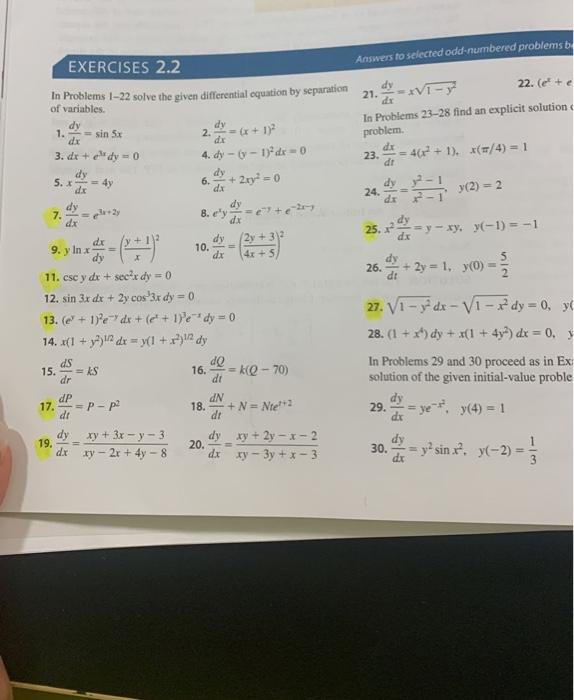 EXERCISES 2.2
Answers to selected odd-numbered problems b
In Problems 1–22 solve the given differential equation by separation
of variables.
1. dy/dx = sin 5x
2. dy/dx = (x + 1)²
3. dx + e³ˣ dy = 0
4. dy – (y – 1)² dx = 0
5. x dy/dx = 4y
6. dy/dx + 2xy² = 0
7. dy/dx = e³ˣ⁺²ʸ
8. eˣy dy/dx = e⁻ʸ + e⁻²ˣ⁻ʸ
9. y ln x dx/dy = ((y + 1)/x)²
10. dy/dx = ((2y + 3)/(4x + 5))²
11. csc y dx + sec²x dy = 0
12. sin 3x dx + 2y cos³3x dy = 0
13. (eʸ + 1)²e⁻ʸ dx + (eˣ + 1)³e⁻ˣ dy = 0
14. x(1 + y²)^1/2 dx = y(1 + x²)^1/2 dy
15. dS/dr = kS
16. dQ/dt = k(Q – 70)
17. dP/dt = P – P²
18. dN/dt + N = Nteᵗ⁺²
19. dy/dx = (xy + 3x – y – 3)/(xy – 2x + 4y – 8)
20. dy/dx = (xy + 2y – x – 2)/(xy – 3y + x – 3)
21. dy/dx = x√(1 – y²)
22. (eˣ + e
In Problems 23–28 find an explicit solution
problem.
23. dx/dt = 4(x² + 1), x(π/4) = 1
24. dy/dx = (y² – 1)/(x² – 1), y(2) = 2
25. x² dy/dx = y – xy, y(–1) = –1
26. dy/dt + 2y = 1, y(0) = 5/2
27. √(1 – y²) dx – √(1 – x²) dy = 0, y(
28. (1 + x⁴) dy + x(1 + 4y²) dx = 0,
In Problems 29 and 30 proceed as in Ex
solution of the given initial-value proble
29. dy/dx = ye^–x², y(4) = 1
30. dy/dx = y² sin x², y(–2) = 1/3